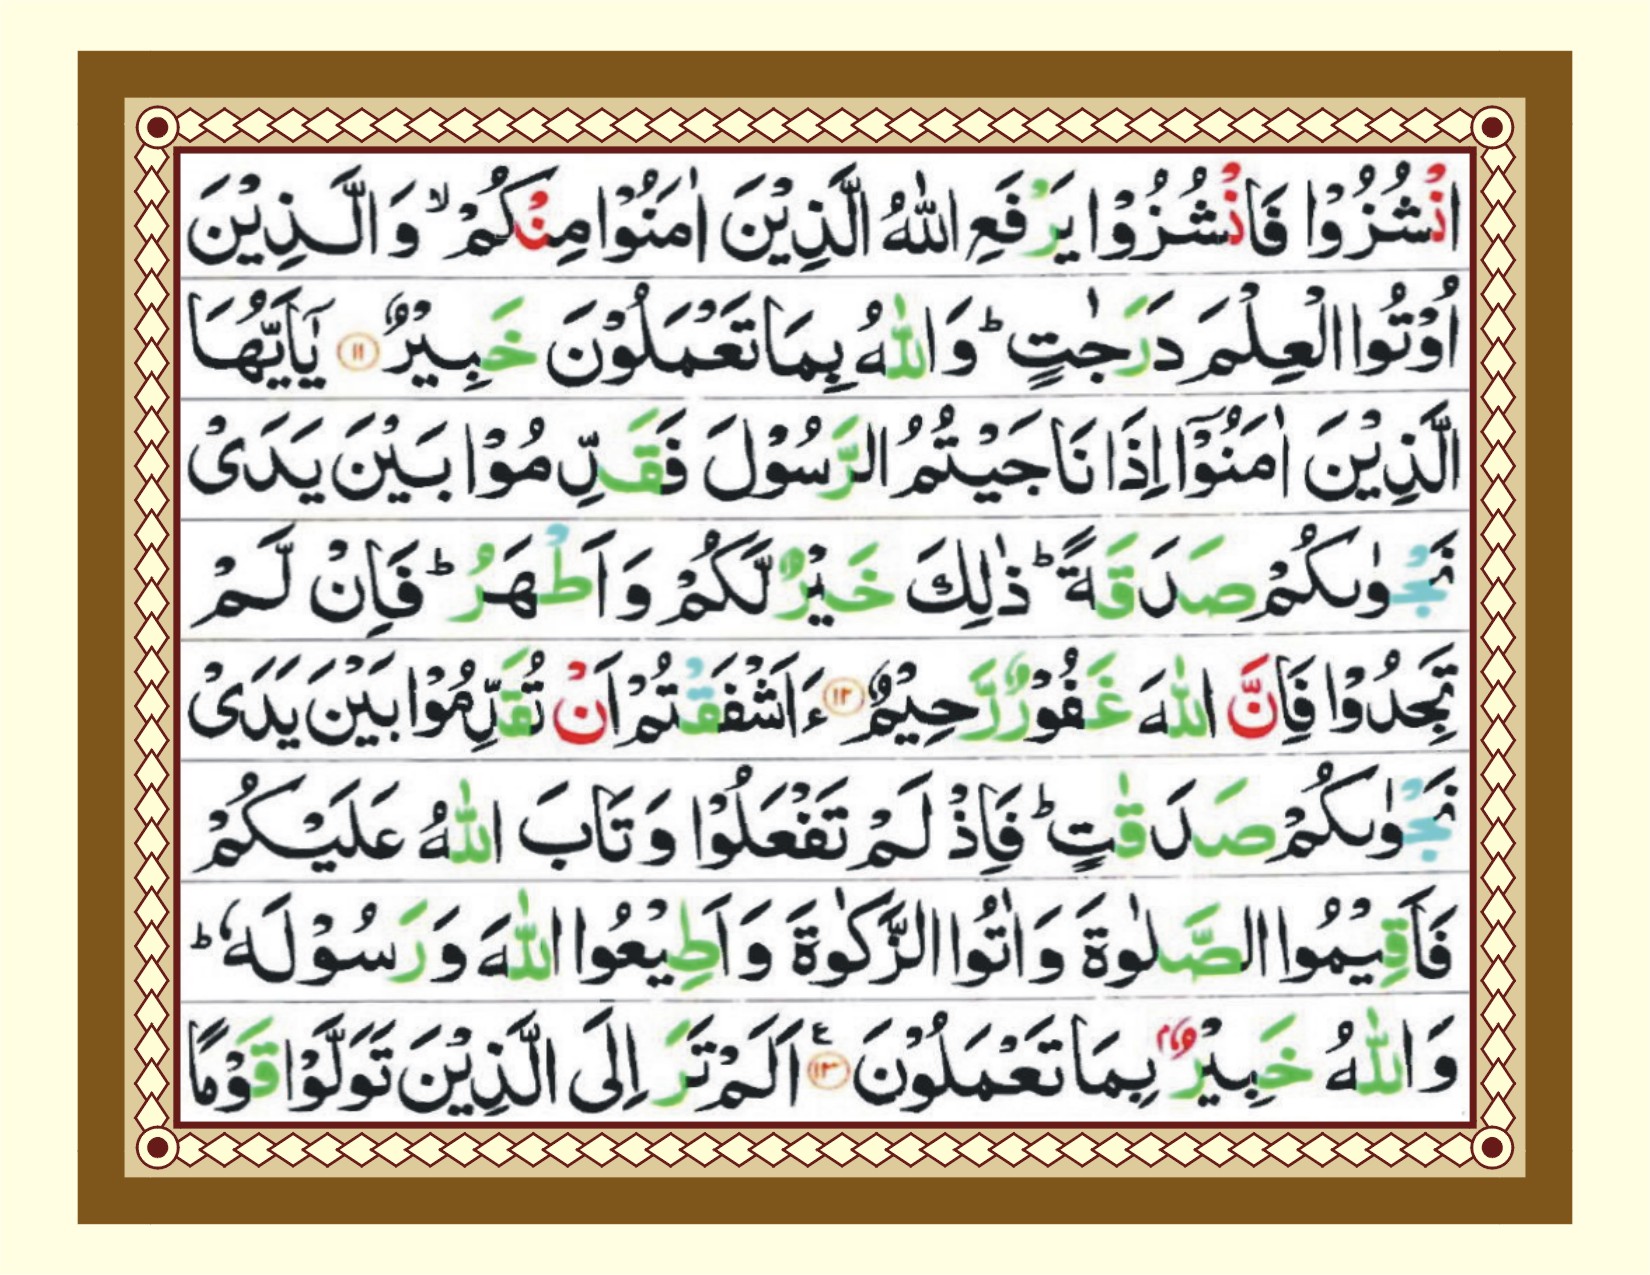 انْشُزُوْا فَانْشُزُوْا يَرْفَعِ اللّٰهُ الَّذِيْنَ اٰمَنُوْا مِنْكُمْ ۙ وَالَّذِيْنَ
اُوْتُوا الْعِلْمَ دَرَجٰتٍ ؕ وَاللّٰهُ بِمَا تَعْمَلُوْنَ خَبِيْرٌ ﴿۱۱﴾ يٰۤاَيُّهَا
الَّذِيْنَ اٰمَنُوْۤا اِذَا نَاجَيْتُمُ الرَّسُوْلَ فَقَدِّمُوْا بَيْنَ يَدَىْ
نَجْوٰىكُمْ صَدَقَةً ؕ ذٰلِكَ خَيْرٌ لَّكُمْ وَاَطْهَرُ ؕ فَاِنْ لَّمْ
تَجِدُوْا فَاِنَّ اللّٰهَ غَفُوْرٌ رَّحِيْمٌ ﴿۱۲﴾ ءَاَشْفَقْتُمْ اَنْ تُقَدِّمُوْا بَيْنَ يَدَىْ
نَجْوٰىكُمْ صَدَقٰتٍ ؕ فَاِذْ لَمْ تَفْعَلُوْا وَتَابَ اللّٰهُ عَلَيْكُمْ
فَاَقِيْمُوا الصَّلٰوةَ وَاٰتُوا الزَّكٰوةَ وَاَطِيْعُوا اللّٰهَ وَرَسُوْلَهٗ ؕ
وَاللّٰهُ خَبِيْرٌۢ بِمَا تَعْمَلُوْنَ ﴿۱۳﴾ ع اَلَمْ تَرَ اِلَى الَّذِيْنَ تَوَلَّوْا قَوْمًا